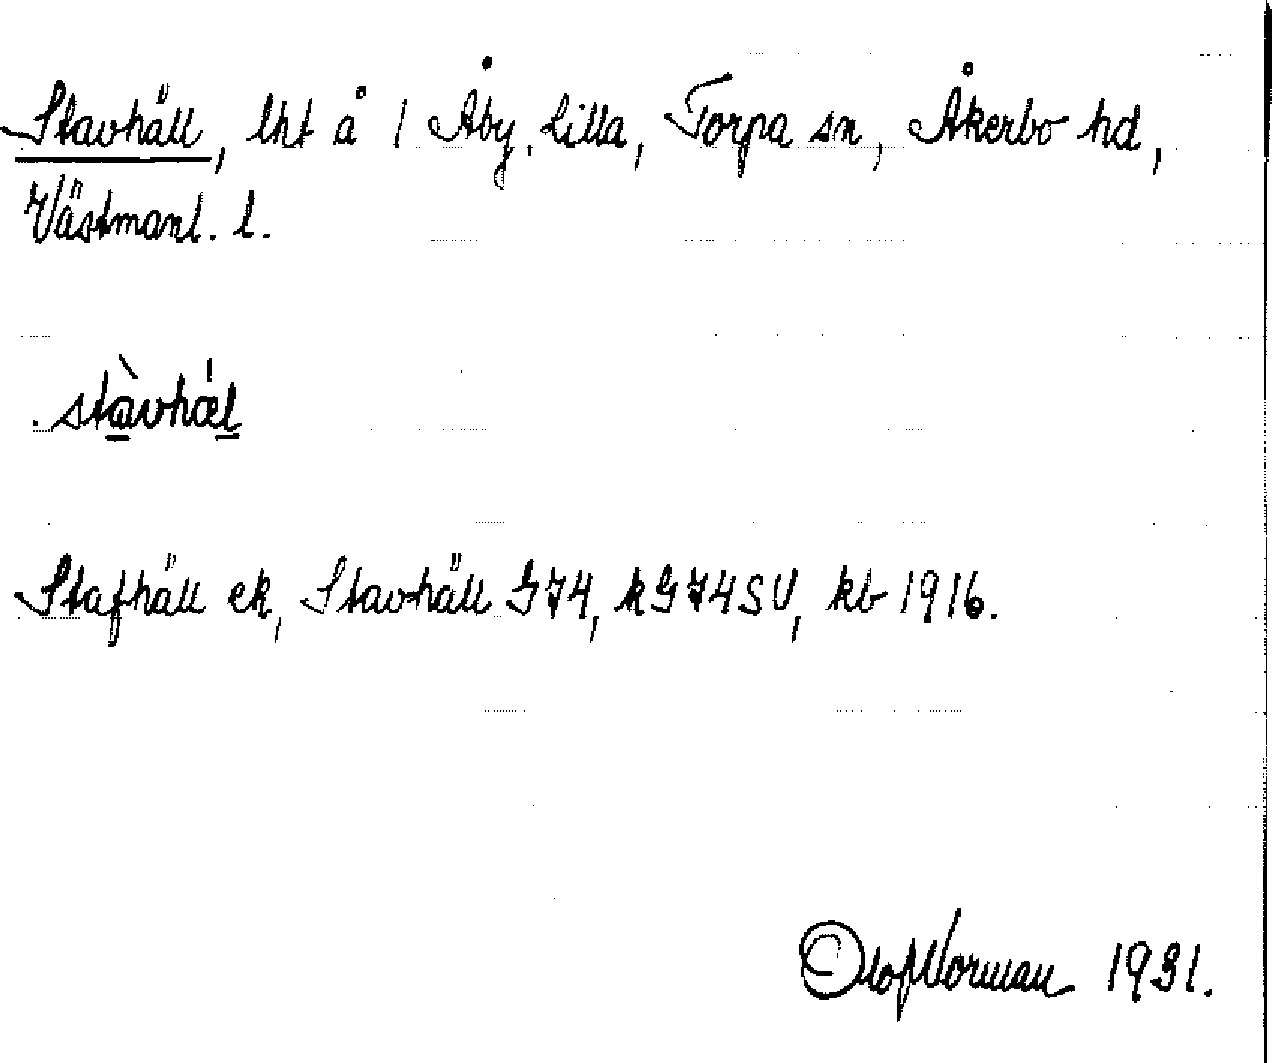 Stavhäll, lht å 1 Åby, Lilla, Torpa sn, Åkerbo hd,
Västmanl. l.
stàvhæ̍l
Stafhäll ek, Stavhäll G74, kG74SV, kb 1916.
Olof Norman 1931.